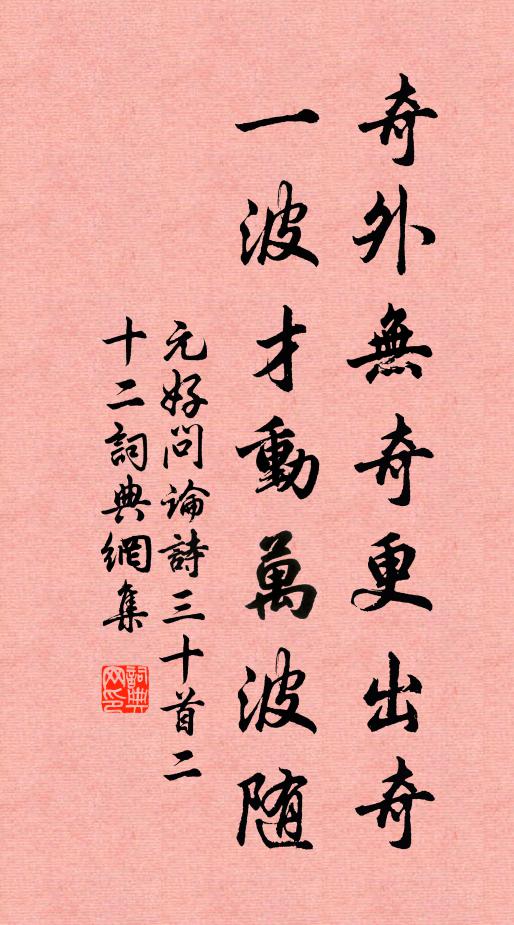 奇外無奇更出奇
一波才動萬波随
元好问論詩三十首二
十二詞典網集
詞典网印